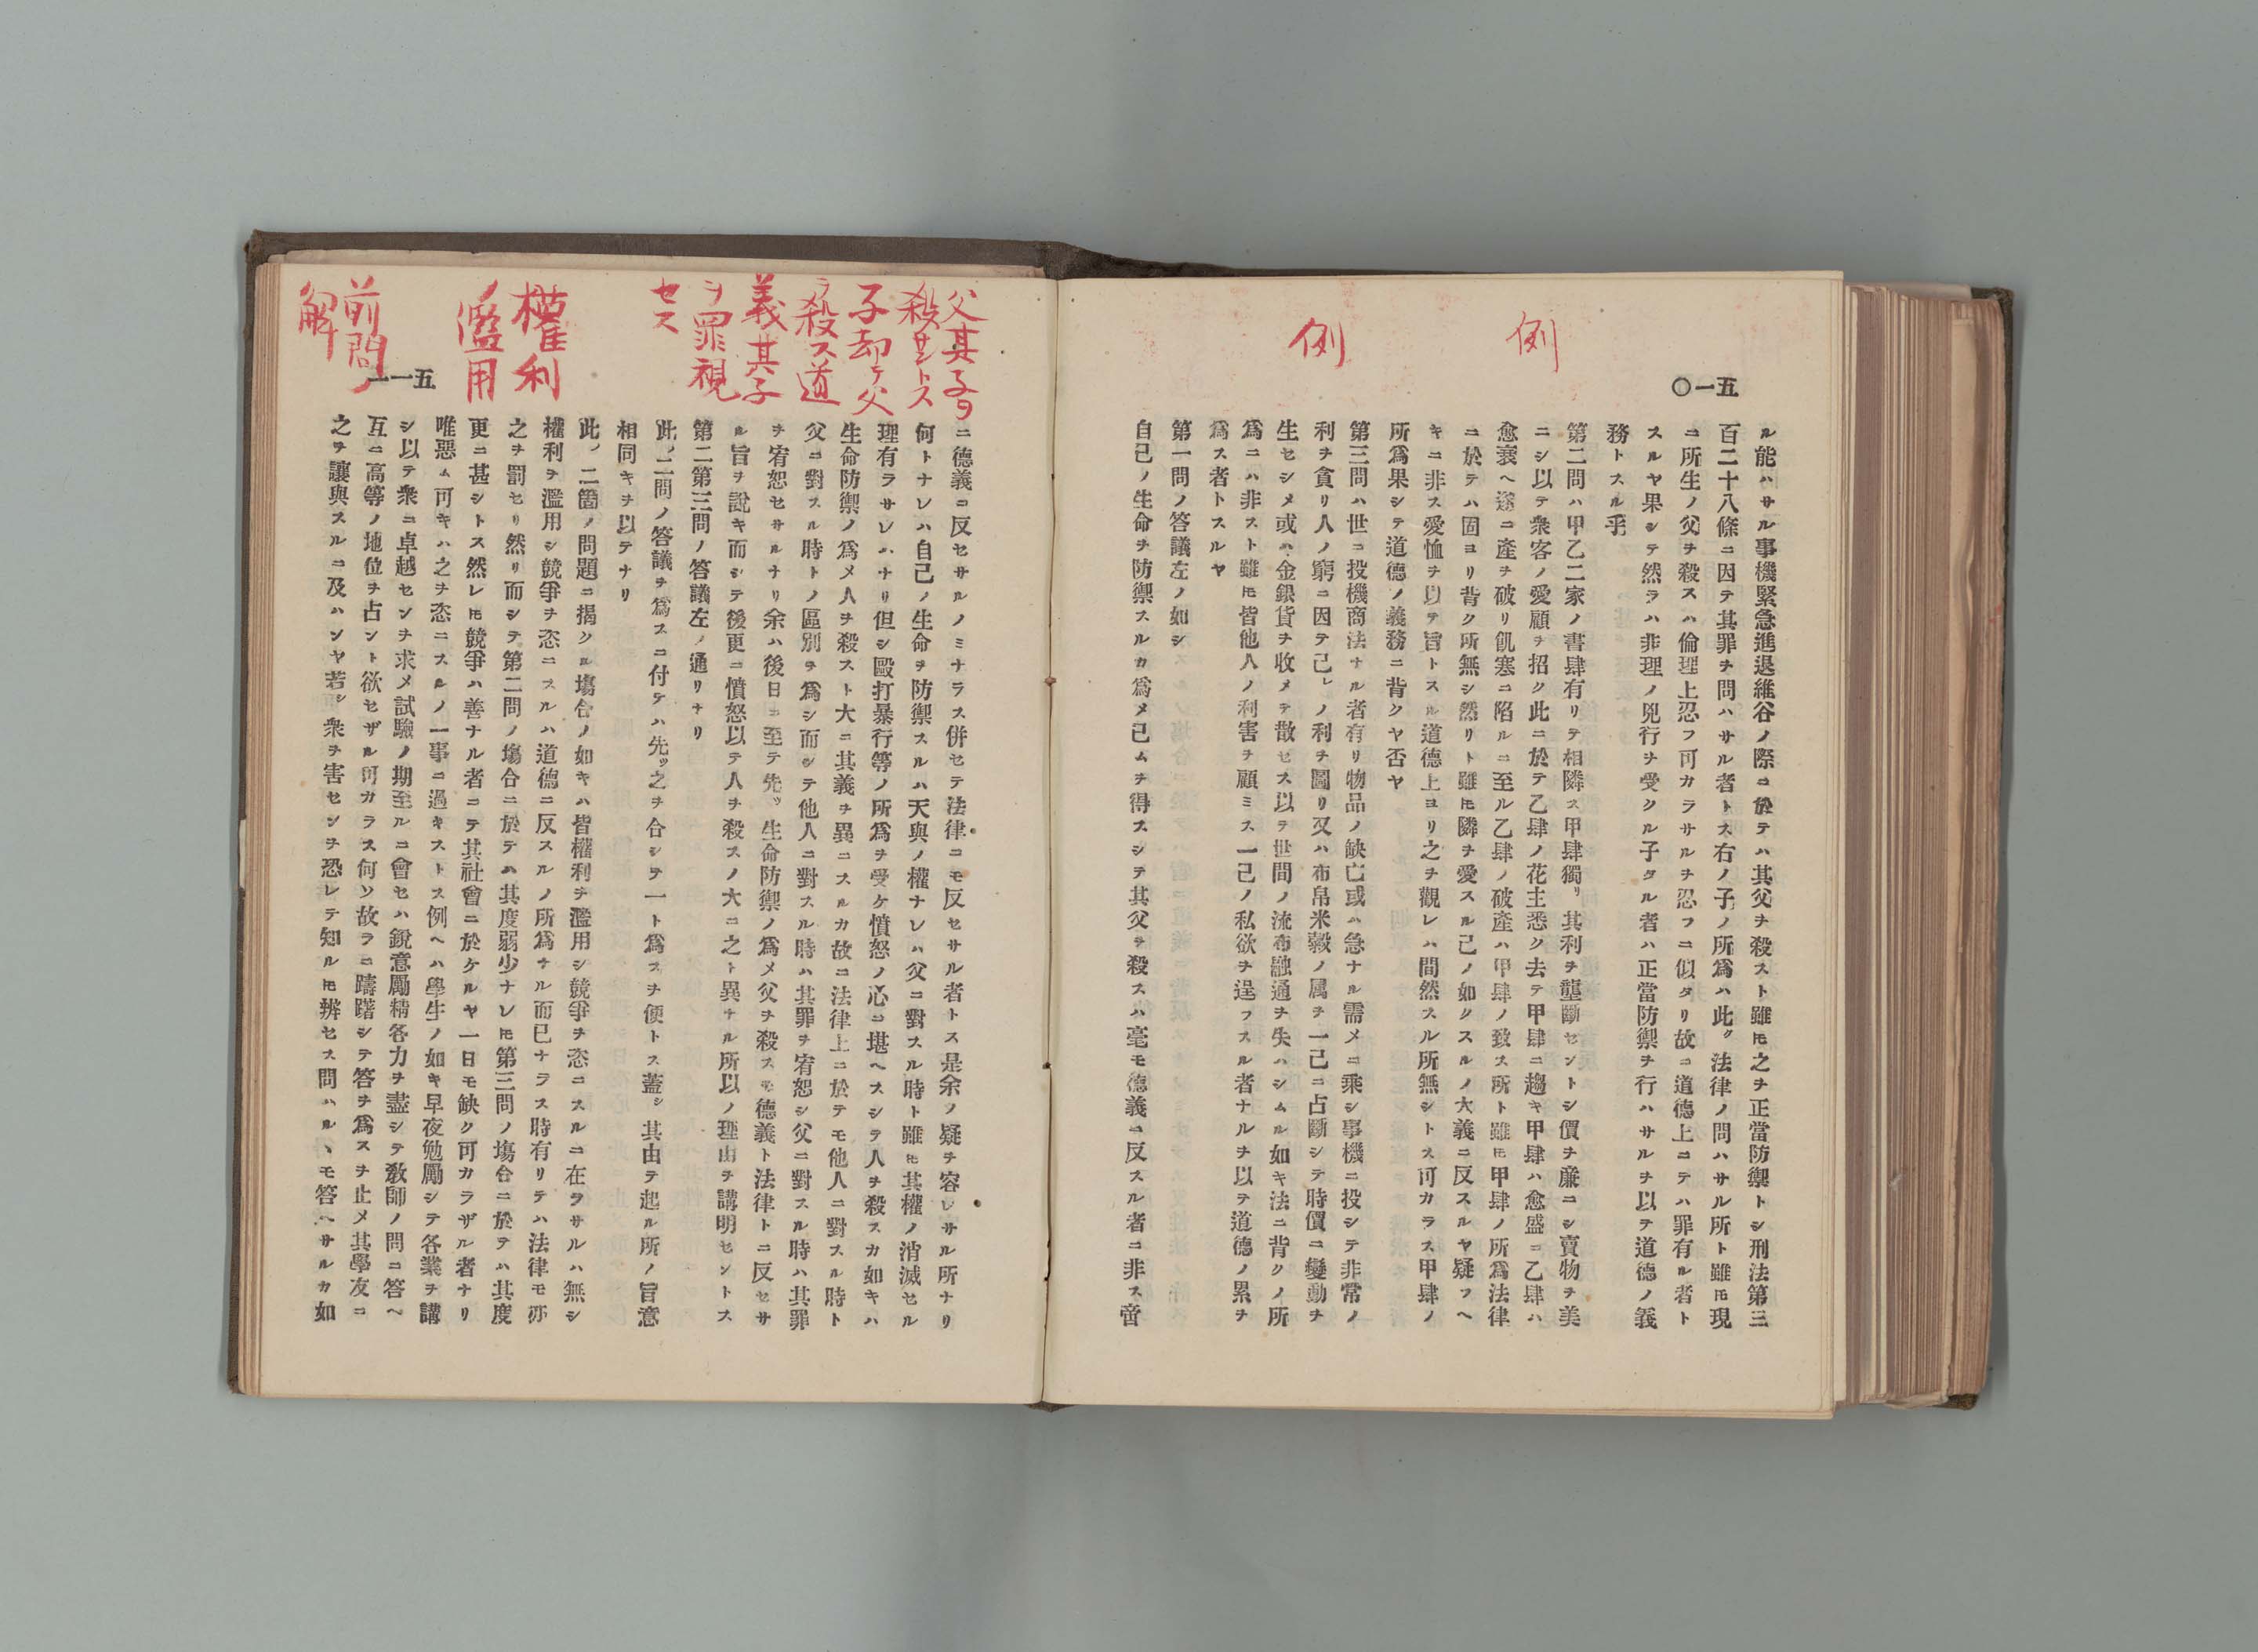 五一〇
例
例
ル能ハサル事機緊急進退維谷ノ際ニ於テハ其父ヲ殺スト雖𪜈之ヲ正當防禦トシ刑法第三
百二十八條ニ因テ其罪ヲ問ハサル者トス右ノ子ノ所爲ハ此ク法律ノ問ハサル所ト雖𪜈現
ニ所生ノ父ヲ殺スハ倫理上忍フ可カラサルヲ忍フニ似タリ故ニ道德上ニテハ罪有ル者ト
スルヤ果シテ然ラハ非理ノ兇行ヲ受クル子タル者ハ正當防禦ヲ行ハサルヲ以テ道德ノ義
務トスル乎
第二問ハ甲乙二家ノ書肆有リテ相隣ス甲肆獨リ其利ヲ壟斷セントシ價ヲ廉ニシ賣物ヲ美
ニシ以テ衆客ノ愛顧ヲ招ク此ニ於テ乙肆ノ花主悉ク去テ甲肆ニ趨キ甲肆ハ愈盛ニ乙肆ハ
愈衰ヘ遂ニ產ヲ破リ飢寒ニ陷ルニ至ル乙肆ノ破產ハ甲肆ノ致ス所ト雖𪜈甲肆ノ所爲法律
ニ於テハ固ヨリ背ク所無シ然リト雖𪜈隣ヲ愛スル己ノ如クスルノ大義ニ反スルヤ疑フヘ
キニ非ス愛恤ヲ以テ旨トスル道德上ヨリ之ヲ觀レハ間然スル所無シトス可カラス甲肆ノ
所爲果シテ道德ノ義務ニ背クヤ否ヤ
第三問ハ世ニ投機商法ナル者有リ物品ノ缺亡或ハ急ナル需メニ乘シ事機ニ投シテ非常ノ
利ヲ貪リ人ノ窮ニ因テ己レノ利ヲ圖リ又ハ布帛米穀ノ属ヲ一己ニ占斷シテ時價ニ變動ヲ
生セシメ或ハ金銀貨ヲ收メテ散セス以テ世間ノ流布融通ヲ失ハシムル如キ法ニ背クノ所
爲ニハ非スト雖𪜈皆他人ノ利害ヲ顧ミス一己ノ私欲ヲ逞フスル者ナルヲ以テ道德ノ累ヲ
爲ス者トスルヤ
第一問ノ答議左ノ如シ
自己ノ生命ヲ防禦スルカ爲メ已ムヲ得スシテ其父ヲ殺スハ毫モ德義ニ反スル者ニ非ス啻
五一一
父其子ヲ
殺サントス
子却テ父
ヲ殺ス道
義其子
ヲ罪視
セス
權利
ノ濫用
前問ノ
解
ニ德義ニ反セサルノミナラス併セテ法律ニモ反セサル者トス是余ノ疑ヲ容レサル所ナリ
何トナレハ自己ノ生命ヲ防禦スルハ天與ノ權ナレハ父ニ對スル時ト雖𪜈其權ノ消滅セル
理有ラサレハナリ但シ毆打暴行等ノ所爲ヲ受ケ憤怒ノ心ニ堪ヘスシテ人ヲ殺スカ如キハ
生命防禦ノ爲メ人ヲ殺スト大ニ其義ヲ異ニスルカ故ニ法律上ニ於テモ他人ニ對スル時ト
父ニ對スル時トノ區別ヲ爲シ而シテ他人ニ對スル時ハ其罪ヲ宥恕シ父ニ對スル時ハ其罪
ヲ宥恕セサルナリ余ハ後日ニ至テ先ッ生命防禦ノ爲メ父ヲ殺スモ德義ト法律トニ反セサ
ル旨ヲ說キ而シテ後更ニ憤怒以テ人ヲ殺スノ大ニ之ト異ナル所以ノ理由ヲ講明セントス
第二第三問ノ答議左ノ通リナリ
此ノ二問ノ答議ヲ爲スニ付テハ先ッ之ヲ合シテ一ト爲スヲ便トス蓋シ其由テ起ル所ノ旨意
相同キヲ以テナリ
此ノ二箇ノ問題ニ揭クル塲合ノ如キハ皆權利ヲ濫用シ競爭ヲ恣ニスルニ在ラサルハ無シ
權利ヲ濫用シ競爭ヲ恣ニスルハ道德ニ反スルノ所爲ナル而已ナラス時有リテハ法律モ亦
之ヲ罰セリ然リ而シテ第二問ノ塲合ニ於テハ其度弱少ナレ𪜈第三問ノ塲合ニ於テハ其度
更ニ甚シトス然レ𪜈競爭ハ善ナル者ニテ其社會ニ於ケルヤ一日モ缺ク可カラザル者ナリ
唯惡ム可キハ之ヲ恣ニスルノ一事ニ過キストス例ヘハ學生ノ如キ早夜勉勵シテ各業ヲ講
シ以テ衆ニ卓越センヲ求メ試驗ノ期至ルニ會セハ銳意勵精各力ヲ盡シテ敎師ノ問ニ答ヘ
互ニ高等ノ地位ヲ占ント欲セザル可カラス何ソ故ラニ躊躇シテ答ヲ爲スヲ止メ其學友ニ
之ヲ讓與スルニ及ハンヤ若シ衆ヲ害センヲ恐レテ知ル𪜈辨セス問ハルヽモ答ヘサルカ如